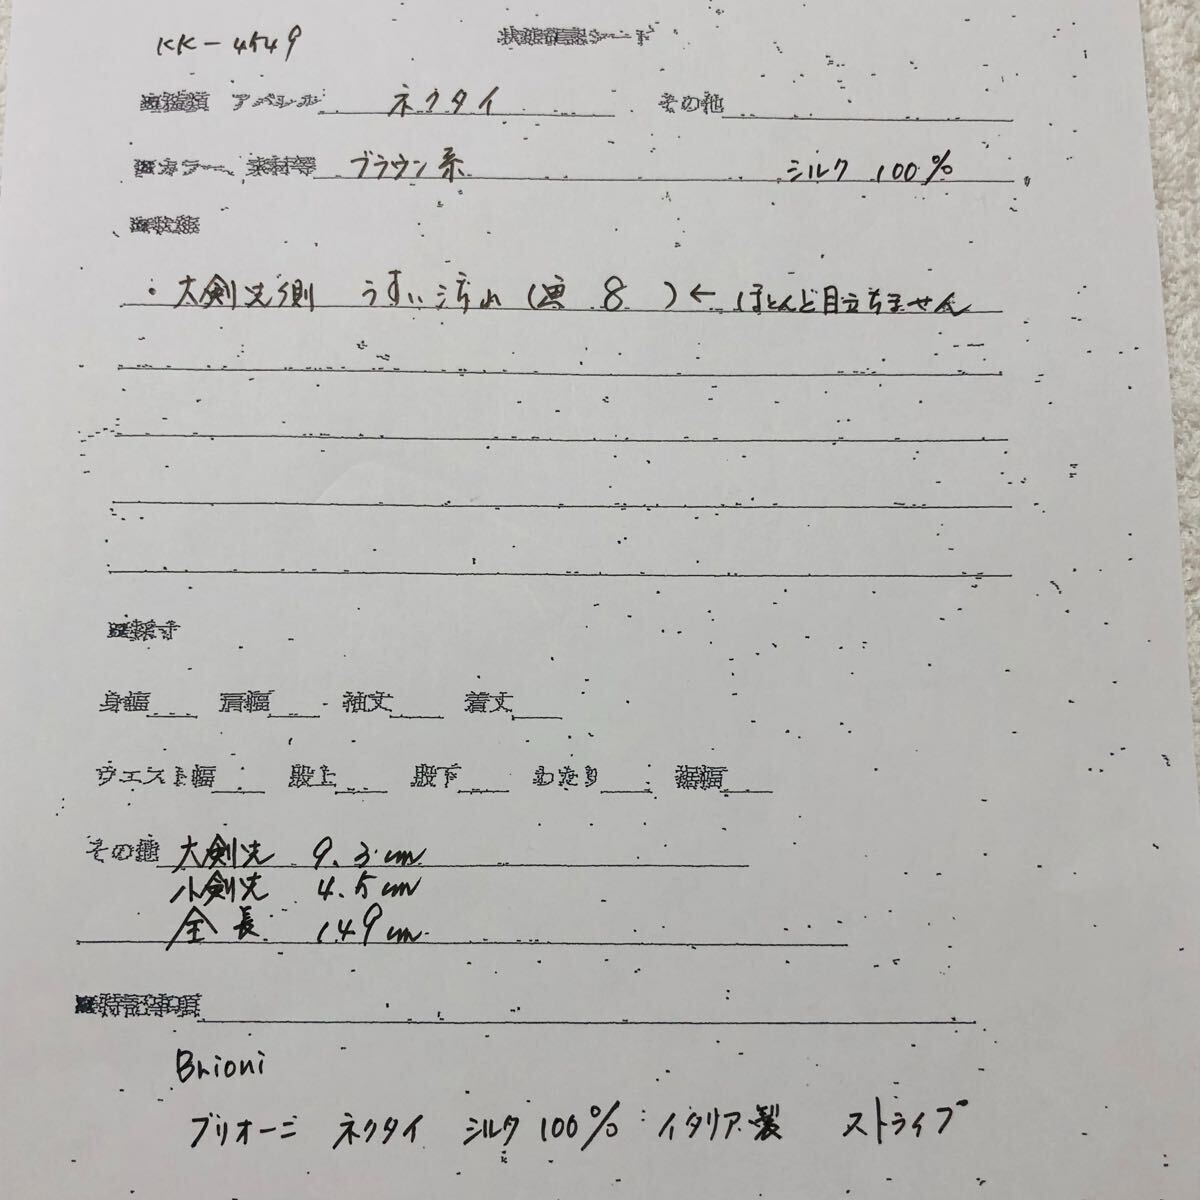 KK-4549
状態確認シート
■種類 アパレル ネクタイ その他
■カラー、素材等 ブラウン系 シルク 100%
■状態
・大剣先側 うすい汚れ(画 8 )← ほとんど目立ちません
■採寸
身幅 肩幅 袖丈 着丈
ウエスト幅 股上 股下 わたり 裾幅
その他 大剣先 9.3cm
小剣先 4.5cm
全長 149cm
■特記事項
Brioni
ブリオーニ ネクタイ シルク100% イタリア製 ストライプ